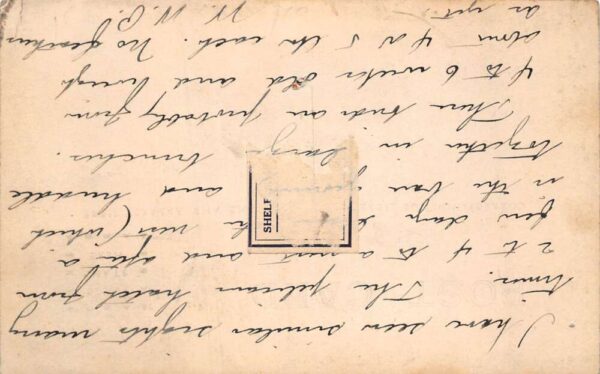 I have seen similar sights many
times. The pelican hatch from
2 to 4 to a nest and after a
few days nest (which
in the and huddle
together in large bunches.
These birds are probably from
4 to 6 weeks old and weigh
about 4 or 5 lbs each. No feathers
as yet. W. W.
SHELF